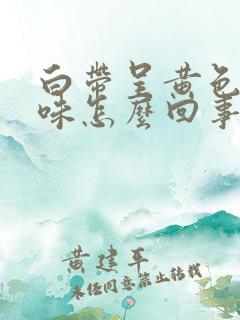 白带呈黄色
味怎麼回事
黄建平
未经同意禁止转载